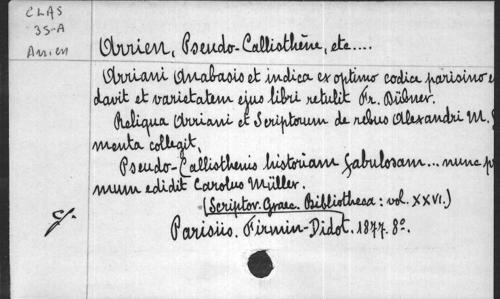 CLAS
35-A
Arrien
Arrien, Pseudo-Callisthène, etc....
Arriani Anabasis et indica ex optimo codice parisino e
davit et varietatem ejus libri retulit Fr. Dübner.
Reliqua Arriani et Scriptorum de rebus Alexandri M.
menta collegit,
Pseudo-Callisthenis historiam fabulosam... nunc p
mum edidit Carolus Müller.
(Scriptor. Graec. Bibliotheca: vol. XXVI.)
Parisiis. Firmin-Didot. 1877. 8º.